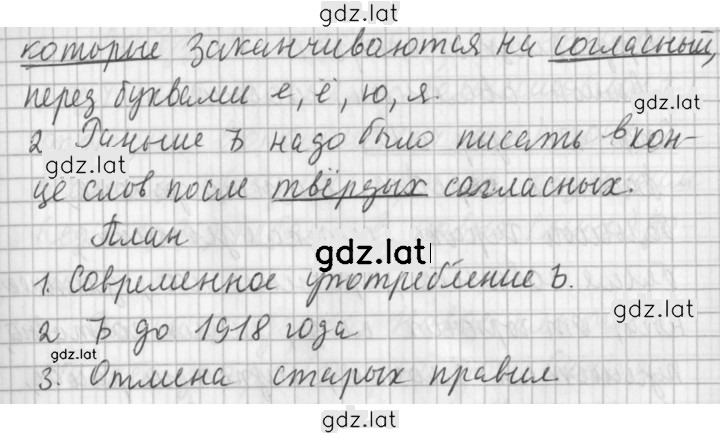 gdz.lat
которые заканчиваются на согласный,
перед буквами е, ё, ю, я.
gdz.lat
2 Раньше ъ надо было писать в кон-
gdz.lat
це слов после твёрдых согласных.
План
gdz.lat
1. Современное употребление ъ.
gdz.lat
2. ъ до 1918 года
gdz.lat
3. Отмена старых правил
gdz.lat